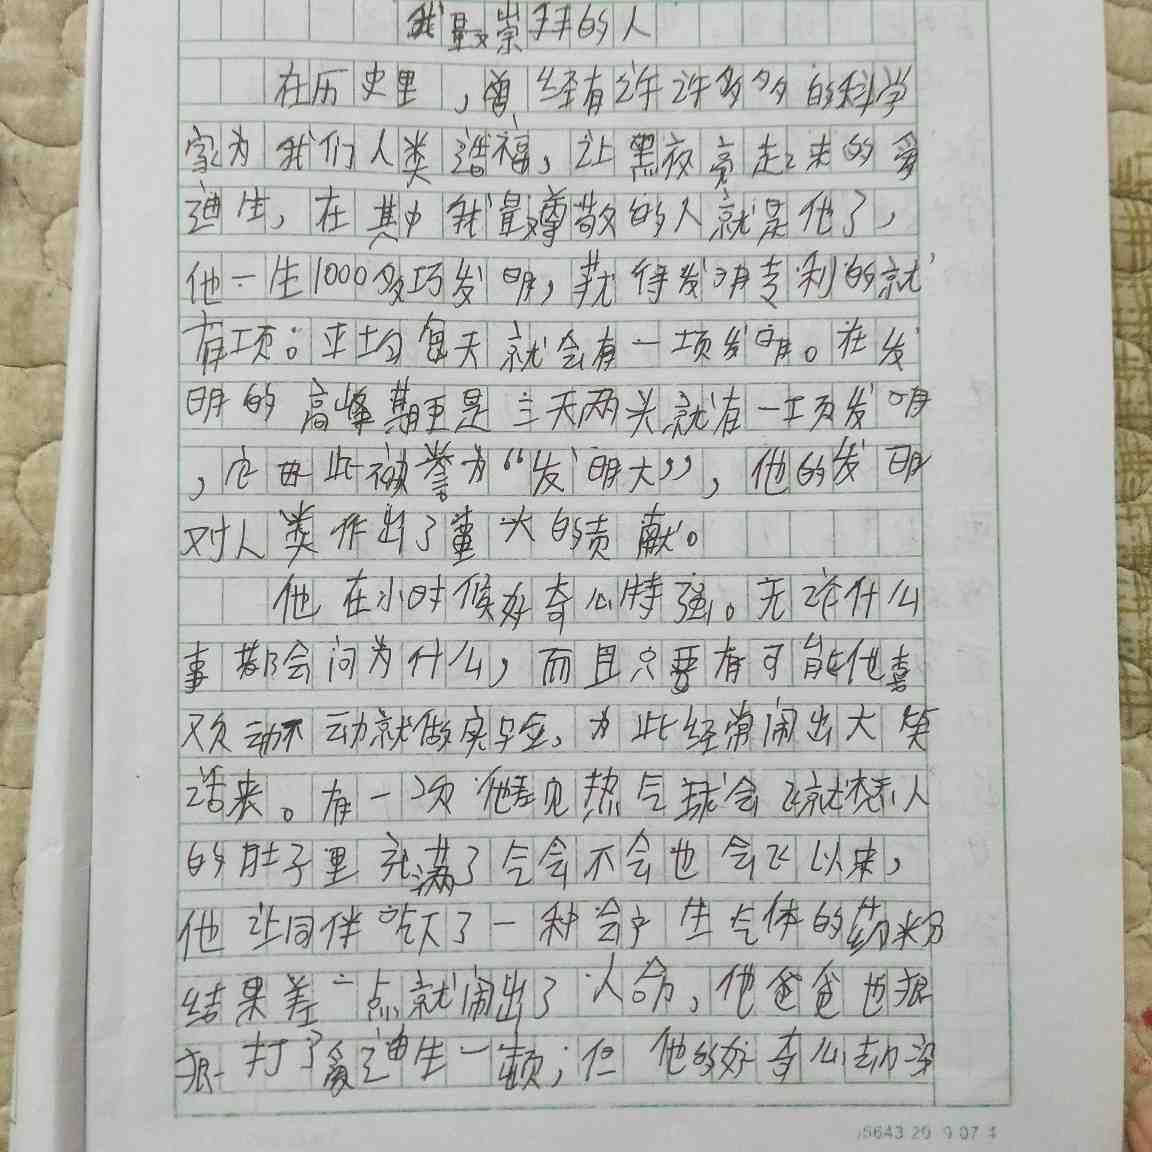 我最崇拜的人
在历史里，曾经有许许多多的科学
家为我们人类造福，让黑夜亮起来的爱
迪生，在其中我最尊敬的人就是他了，
他一生1000多巧发明，获得发明专利的就
有项。平均每天就会有一项发明。在发
明的高峰期更是三天两头就有一项发明
，应由此被誉为“发明大”，他的发明
对人类作出了重大的贡献。
他在小时候好奇心特强。无许什么
事都会问为什么，而且只要有可能他喜
欢动不动就做实验，为此经常闹出大笑
话来。有一次他看见热气球会飞就想人
的肚子里充满了气会不会也会飞以来，
他让同伴吃下了一种会产生气体的药粉
结果差一点就闹出了人命，他爸爸也狠
狠打了爱迪生一顿；但他的好奇心却没